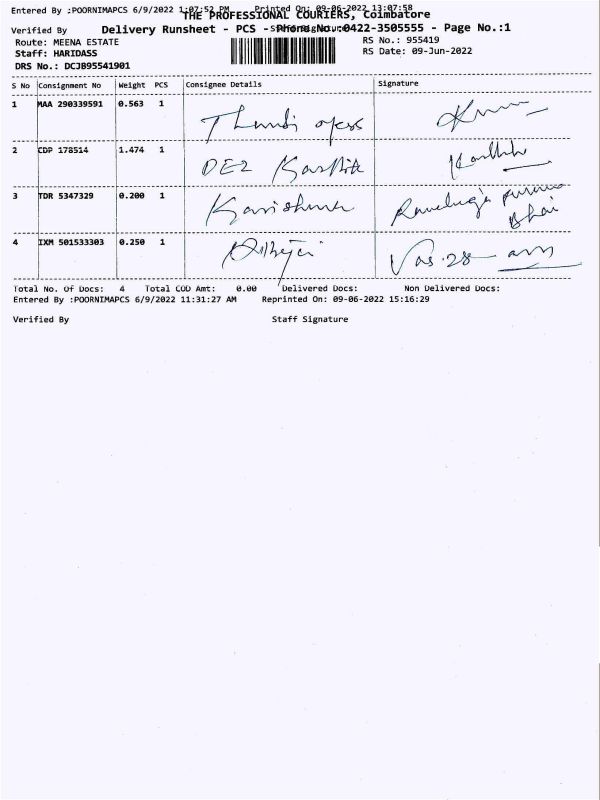 Entered By :POORNIMAPCS 6/9/2022 1:07:52 PM Printed On: 09-06-2022 13:07:58
THE PROFESSIONAL COURIERS, Coimbatore
Verified By
Delivery Runsheet - PCS - Phone No.:0422-3505555 - Page No.:1
Route: MEENA ESTATE
RS No.: 955419
Staff: HARIDASS
RS Date: 09-Jun-2022
DRS No.: DCJB95541901
S No Consignment No Weight PCS Consignee Details Signature
1 MAA 290339591 0.563 1
2 CDP 178514 1.474 1 Karthik
3 TDR 5347329 0.200 1 Karishma
4 IXM 501533303 0.250 1
Total No. Of Docs: 4 Total COD Amt: 0.00 Delivered Docs: Non Delivered Docs:
Entered By :POORNIMAPCS 6/9/2022 11:31:27 AM Reprinted On: 09-06-2022 15:16:29
Verified By Staff Signature